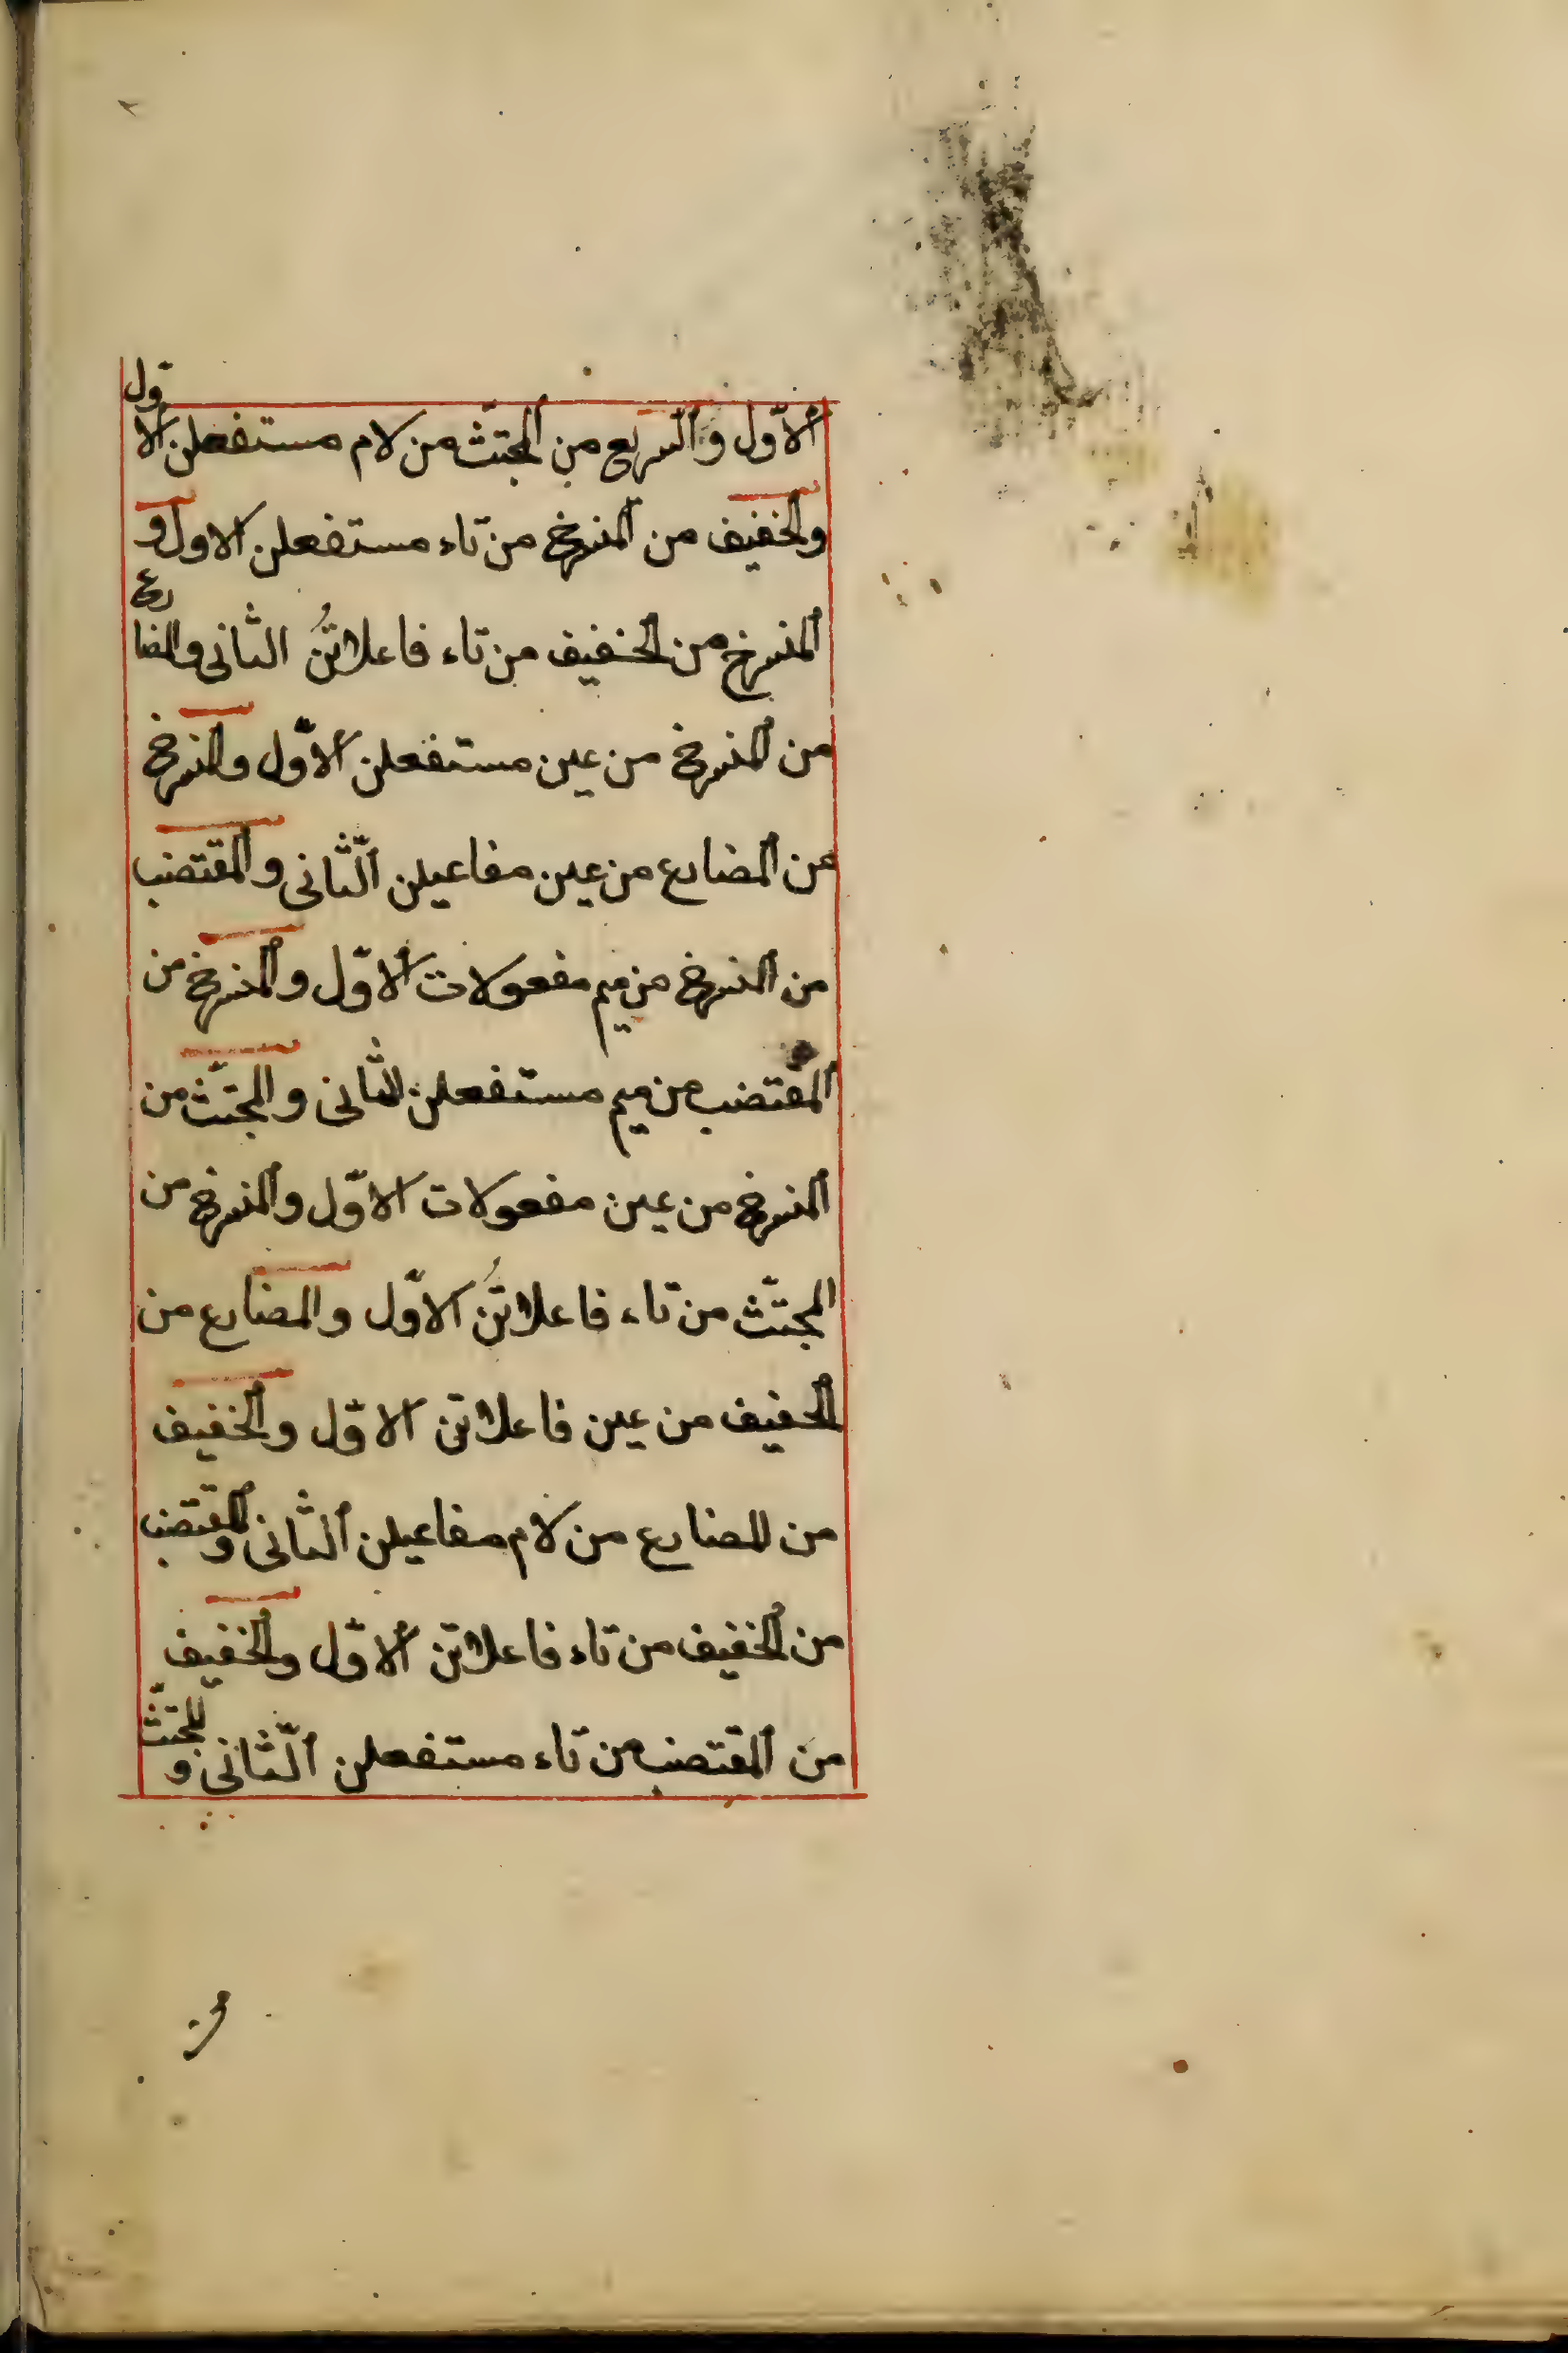 الأوّل والسريع من المجتثّ من لام مستفعلن الاول
والخفيف من المنسرح من تاء مستفعلن الاول و
المنسرح من الخفيف من تاء فاعلاتنُ الثانى والمضارع
من المنسرح من عين مستفعلن الاوّل والمنسرح
من المضارع من عين مفاعيلن الثّانى والمقتضب
من المنسرح من ميم مفعولات الاوّل والمنسرح من
المقتضب من ميم مستفعلن الثانى والمجتثّ من
المنسرح من عين مفعولات الاوّل والمنسرح من
المجتثّ من تاء فاعلاتنُ الاوّل والمضارع من
الخفيف من عين فاعلاتن الاوّل والخفيف
من المضارع من لام مفاعيلن الثانى والمقتضب
من الخفيف من تاء فاعلاتن الاوّل والخفيف
من المقتضب من تاء مستفعلن الثّانى والمجتثّ